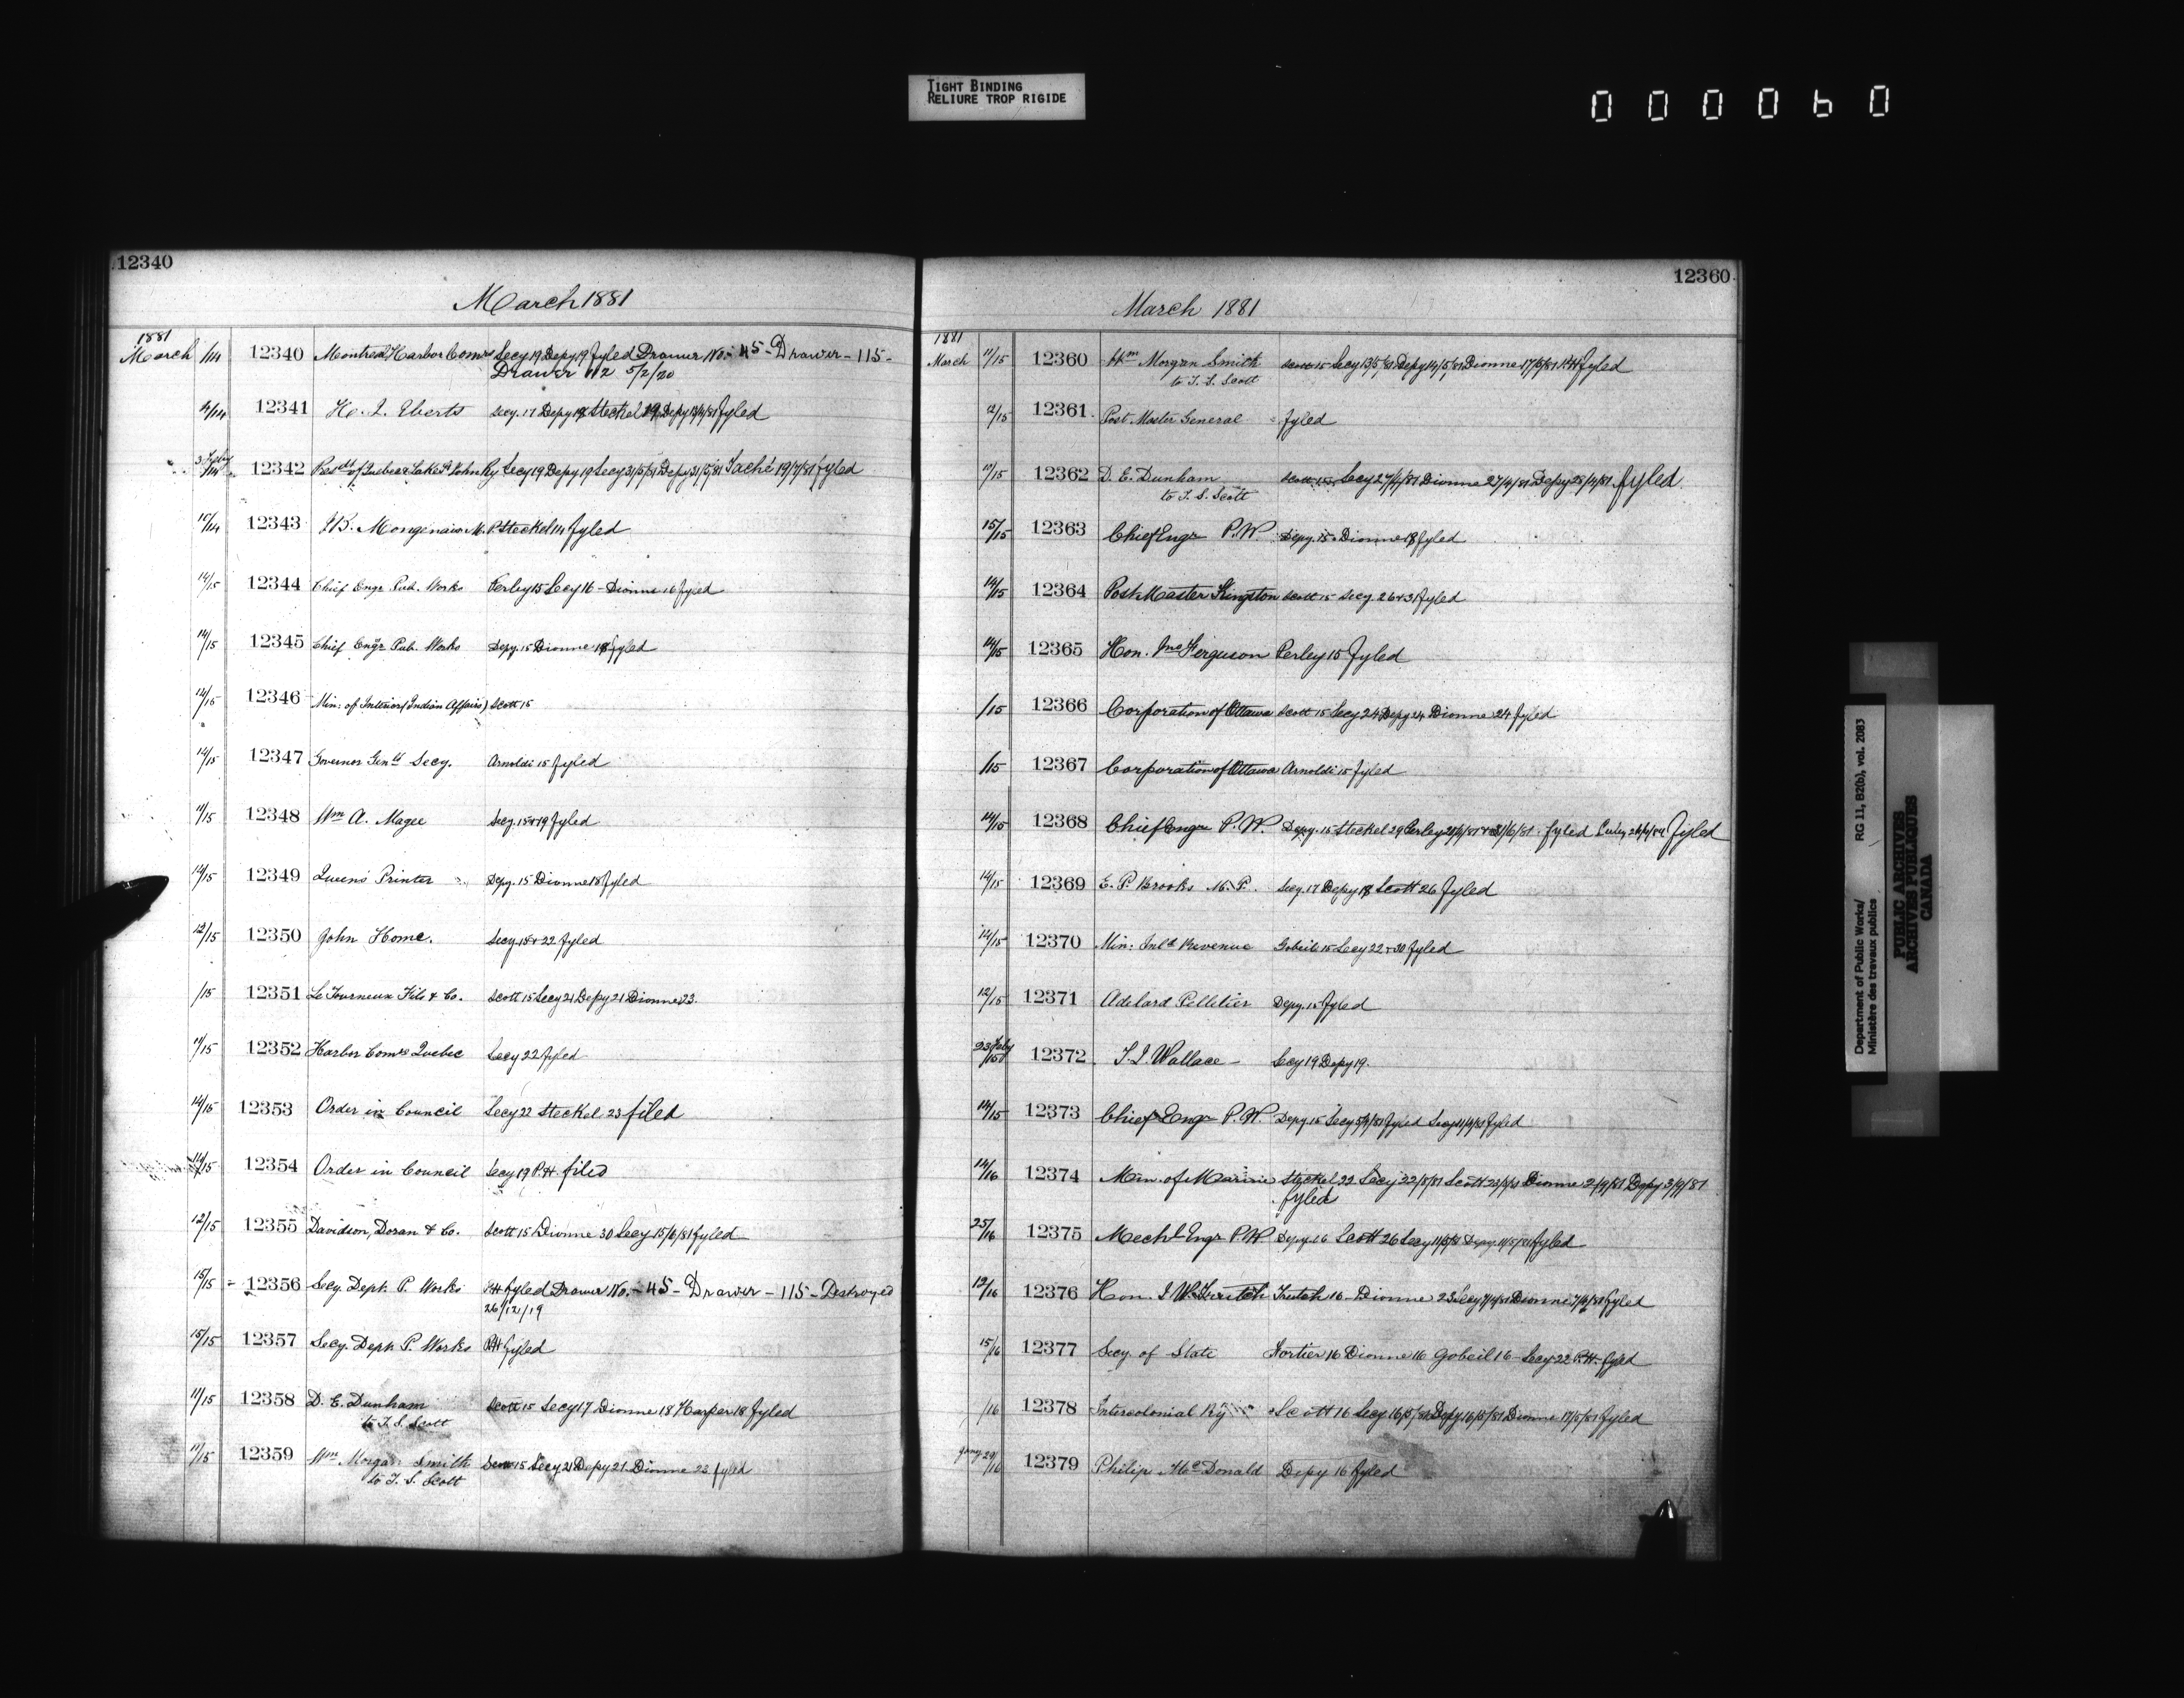 TIGHT BINDING
RELIURE TROP RIGIDE
000060
12340
March 1881
1881
March /14 12340 Montreal Harbor Comrs Secy 19 Depy 19 fyled Drawer No. 45 - Drawer - 115 -
Drawer 112 5/2/20
/14 12341 H. J. Eberts Secy. 17 Depy 18 Steckel 19 Depy fyled
/14 12342 Presdt of Quebec & Lake St John Ry Secy 19 Depy 19 Secy 31/5/81 Depy 31/5/81 Taché 19/7/81 fyled
/14 12343 J.B. Mongenais M.P. Steckel 14 fyled
14/15 12344 Chief Engr Pub. Works Perley 15 Secy 16 - Dionne 16 fyled
14/15 12345 Chief Engr Pub. Works Depy. 15 Dionne 18 fyled
/15 12346 Min: of Interior (Indian Affairs) Scott 15
/15 12347 Governor Genl's Secy. Arnoldi 15 fyled
11/15 12348 Wm A. Magee Secy. 15 & 19 fyled
/15 12349 Queens Printer Depy. 15 Dionne 18 fyled
12/15 12350 John Home. Secy 18 & 22 fyled
/15 12351 Le Tourneux Fils & Co. Scott 15 Secy 21 Depy 21 Dionne 23.
11/15 12352 Harbor Comrs Quebec Secy 22 fyled
14/15 12353 Order in Council Secy 22 Steckel 23 filed
14/15 12354 Order in Council Secy 19 P.H filed
12/15 12355 Davidson, Doran & Co. Scott 15 Dionne 30 Secy fyled
15/15 12356 Secy. Dept. P. Works P.H fyled Drawer No. - 45 - Drawer - 115 - Destroyed
26/12/19
15/15 12357 Secy. Dept. P. Works P.H fyled
11/15 12358 D. E. Dunham Scott 15 Secy 17 Dionne 18 Harper 18 fyled
to T. S. Scott
11/15 12359 Wm Morgan Smith Scott 15 Secy 21 Depy 21 Dionne 23 fyled
to T. S. Scott
12360
March 1881
1881
March 11/15 12360 Wm Morgan Smith Scott 15 Secy 13/5/81 Depy 14/5/81 Dionne 17/5/81 P.H fyled
to T. S. Scott
12/15 12361 Post Master General fyled
/15 12362 D. E. Dunham Scott 15 Secy 27/4/81 Dionne 27/4/81 Depy 28/4/81 fyled
to T. S. Scott
15/15 12363 Chief Engr P.W. Depy. 15 Dionne 18 fyled
14/15 12364 Post Master Kingston Scott 15 Secy. 26 & 31 fyled
14/15 12365 Hon. Ferguson Perley 15 fyled
/15 12366 Corporation of Ottawa Scott 15 Secy 24 Depy 24 Dionne 24 fyled
/15 12367 Corporation of Ottawa Arnoldi 15 fyled
14/15 12368 Chief Engr P.W. Depy. 15 Steckel 29 Perley fyled fyled
14/15 12369 E. P. Brooks M.P. Secy. 17 Depy 18 Scott 26 fyled
14/15 12370 Min: Inld Revenue Gobeil 15 Secy 22 & 30 fyled
12/15 12371 Adelard Pelletier Depy. 15 fyled
23 Feby/15 12372 T. J. Wallace Secy 19 Depy 19.
14/15 12373 Chief Engr P.W. Depy 15 Secy fyled Secy fyled
14/16 12374 Min. of Marine Steckel 22 Secy 22/8/81 Scott Dionne 2/9/81 Depy 3/9/81
fyled
25/16 12375 Mechl Engr P.W Depy. 16 Scott 26 Secy 11/5/81 Depy. 11/5/81 fyled
12/16 12376 Hon. J. W. Trutch Trutch 16 Dionne 23 Secy 7/4/81 Dionne 7/4/81 fyled
15/16 12377 Secy of State Fortier 16 Dionne 16 Gobeil 16 - Secy 22 P.H. fyled
/16 12378 Intercolonial Ry Scott 16 Secy 16/5/81 Depy. 16/5/81 Dionne 17/5/81 fyled
Jany 29/16 12379 Philip McDonald Depy 16 fyled
Department of Public Works/ RG 11, B2(b), vol. 2083
Ministère des travaux publics
PUBLIC ARCHIVES
ARCHIVES PUBLIQUES
CANADA